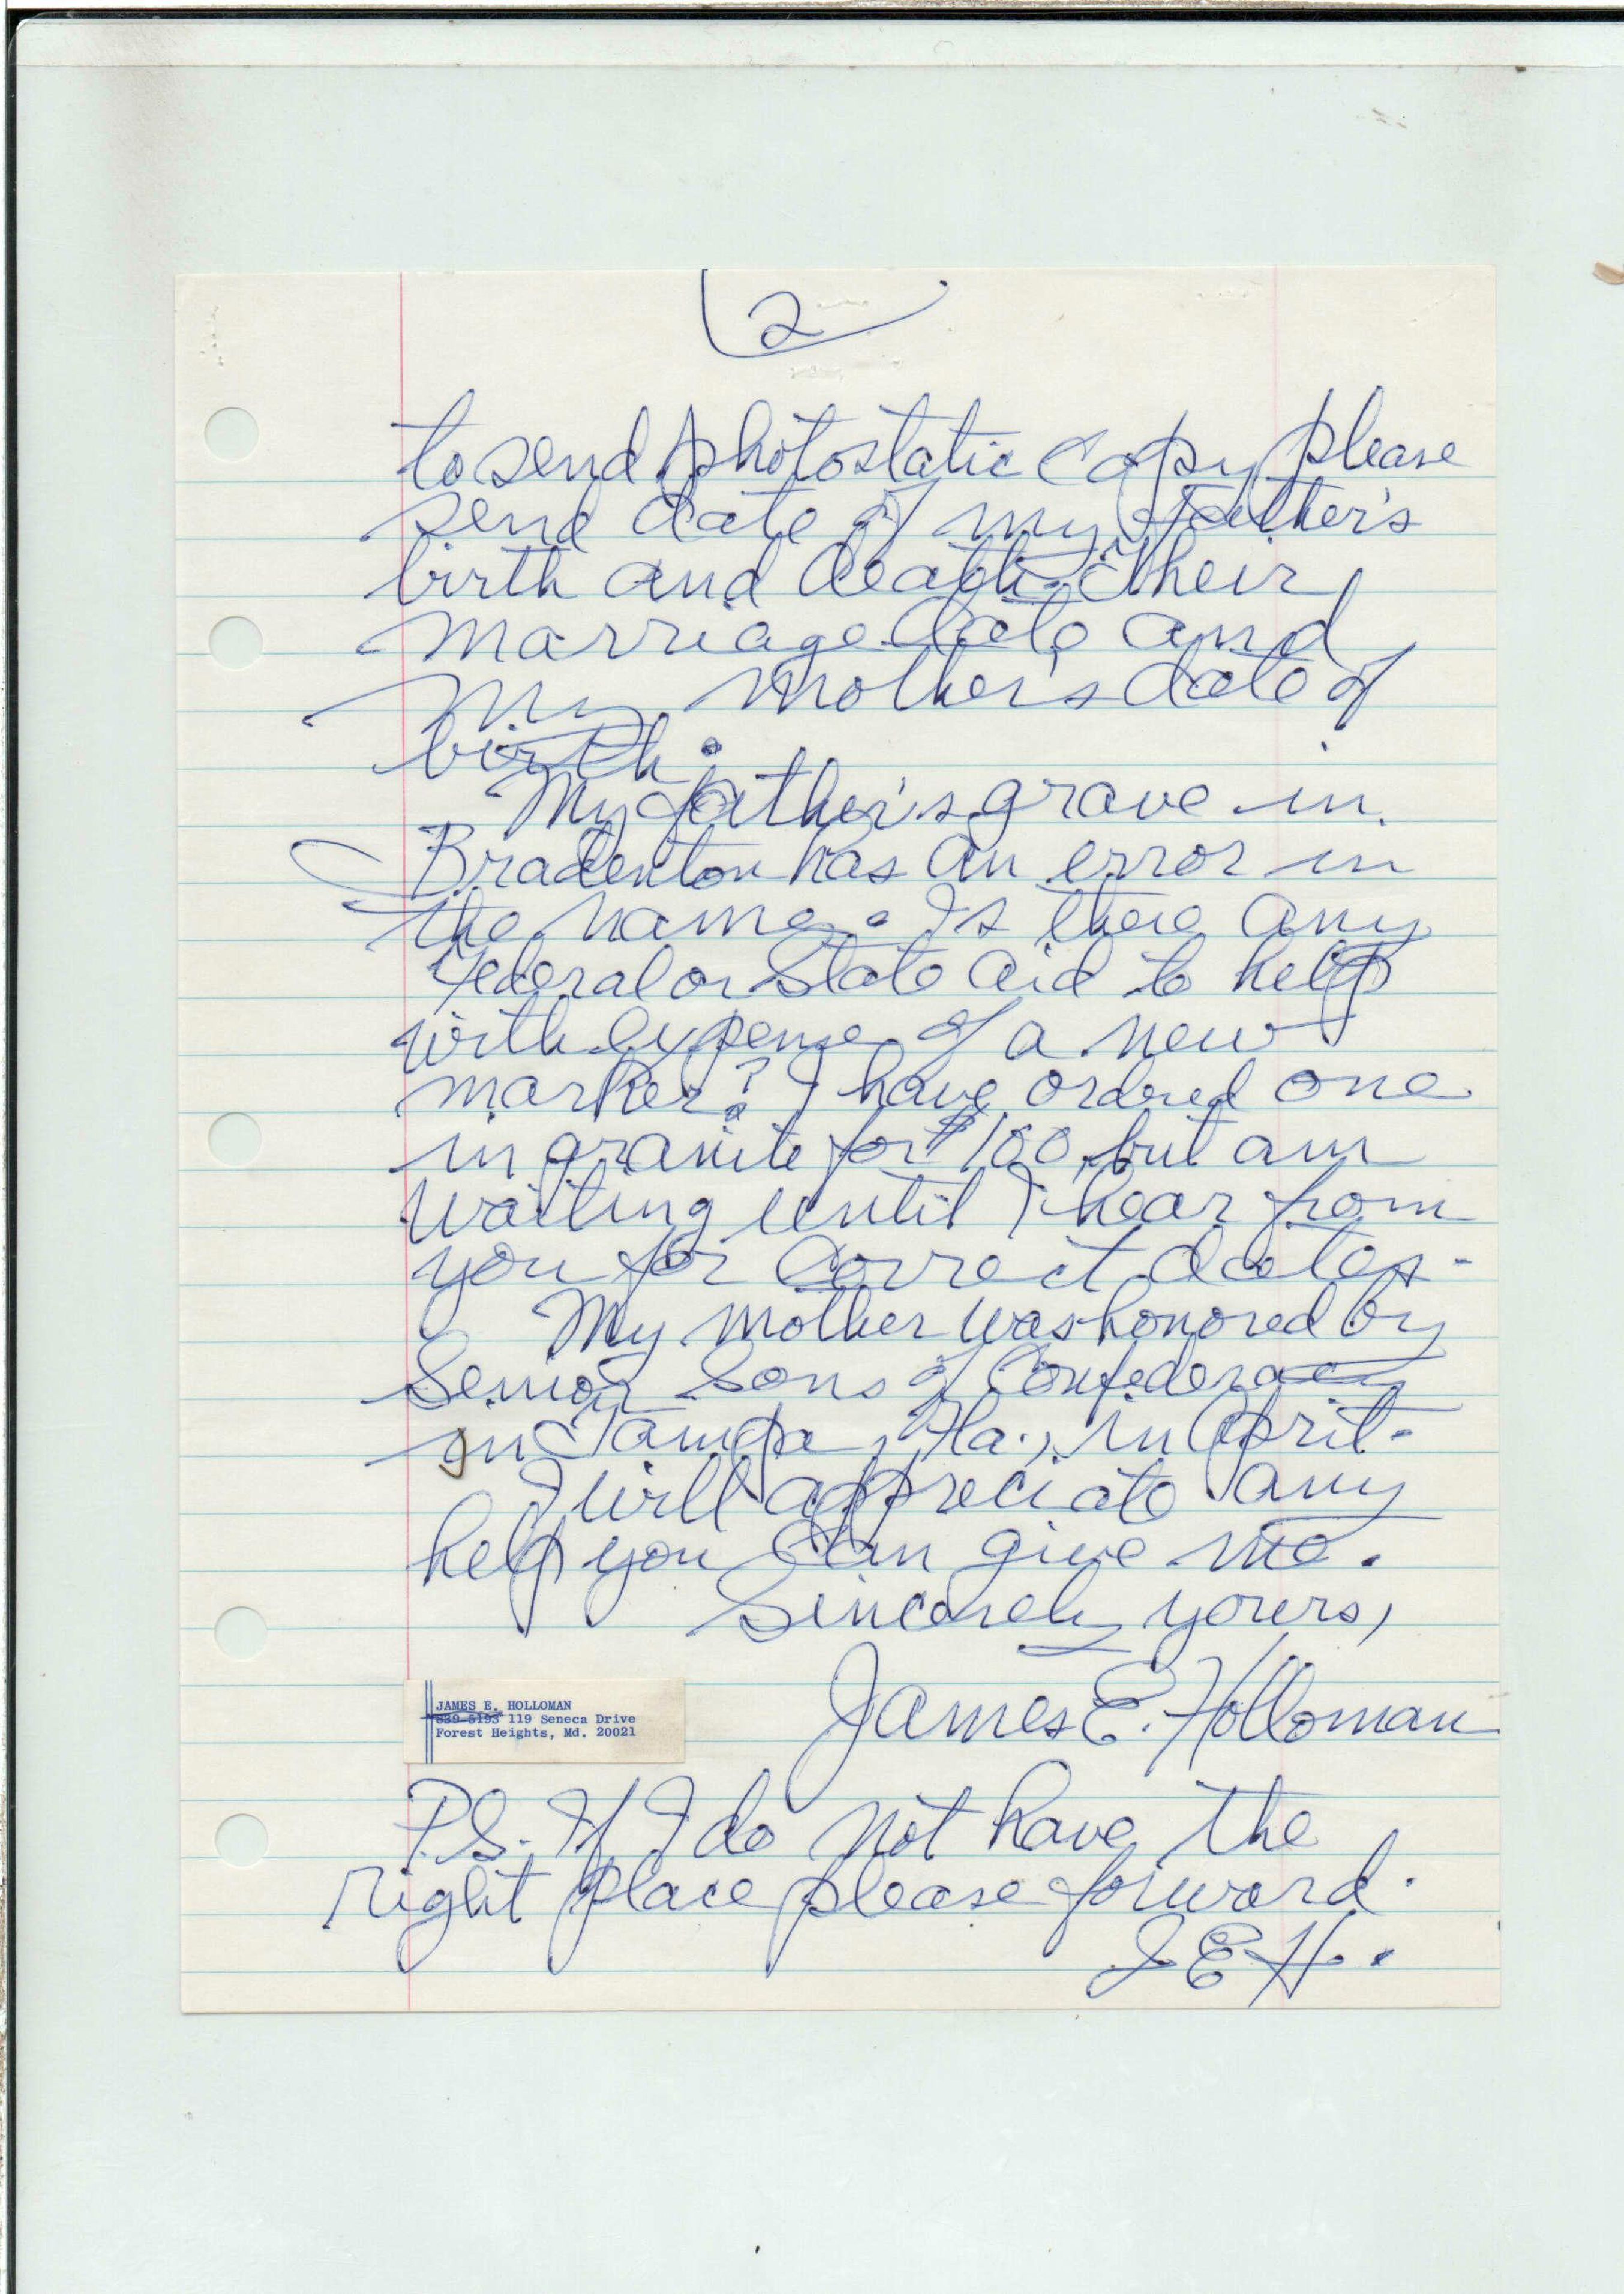 2
to send photostatic copy please
send date of my Father's
birth and death, their
marriage date and
my mother's date of
birth.
My father's grave in
Bradenton has an error in
the name. Is there any
Federal or State aid to help
with expense of a new
marker? I have ordered one
in granite for $100, but am
waiting until I hear from
you for correct dates.
My mother was honored by
Senior Sons of Confederacy
in Tampa, Fla., in April.
I will appreciate any
help you can give me.
Sincerely yours,
James E. Holloman
JAMES E. HOLLOMAN
839-5193 119 Seneca Drive
Forest Heights, Md. 20021
P.S. If I do not have the
right place please forward.
J E H.